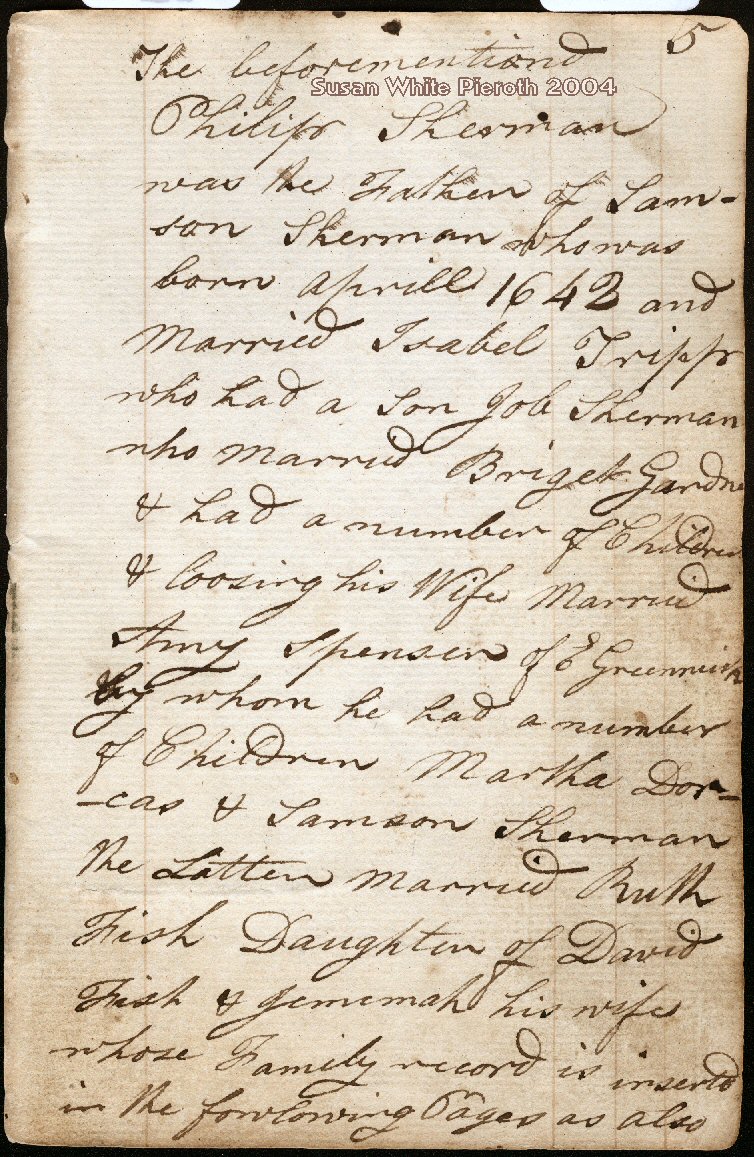 5
The beforementiond
Susan White Pieroth 2004
Philip Sherman
was the Father of Sam-
son Sherman who was
born aprill 1642 and
Married Isabel Tripp
who had a Son Job Sherman
who married Briget Gardne
& had a number of Children
& loosing his Wife Married
Amy Spenser of E Greenwich
by whom he had a number
of Children Martha Dor-
-cas & Samson Sherman
the Latter married Ruth
Fish Daughter of David
Fish & Jememah his wife
whose Family record is inserted
in the fowlowing Pages as also